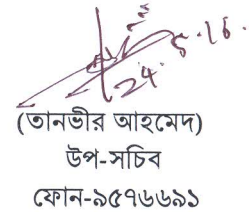 24.5.16.
(তানভীর আহমেদ)
উপ-সচিব
ফোন-৯৫৭৬৬৯১